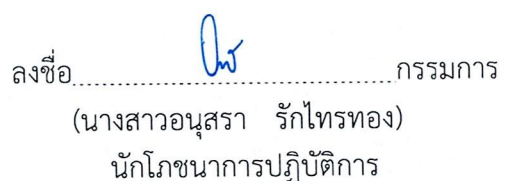 ลงชื่อ................................................กรรมการ
(นางสาวอนุสรา รักไทรทอง)
นักโภชนาการปฏิบัติการ